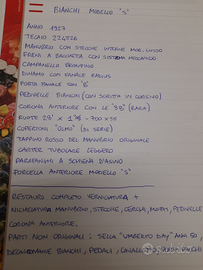 BIANCHI MODELLO "S"
ANNO 1927
TELAIO 224826
MANUBRIO CON STECCHE INTERNE MOD. LUSSO
FRENI A BACCHETTA CON SISTEMA MECCANICO
CAMPANELLO
DINAMO CON FANALE RADIUS
PORTA FANALE CON "B"
PEDIVELLE BIANCHI (CON SCRITTA IN CORSIVO)
CORONA ANTERIORE CON LE "3B" (RARA)
RUOTE 28" x - 700 x 35
COPERTONI "OLMO" (DI SERIE)
TAPPINO ROSSO DEL MARRONE ORIGINALE
CARTER TUBOLARE LEGGERO
PARAFANGHI A SCHIENA D'ASINO
FORCELLA ANTERIORE MODELLO "S"
RESTAURO COMPLETO VERNICIATURA +
NICHELATURA MANUBRIO, STECCHE, CERCHI, MOZZI, PEDIVELLE
CORONA ANTERIORE.
PARTI NON ORIGINALI: SELLA "UMBERTO DEI" ANNI 50,
BIANCHI, PEDALI,